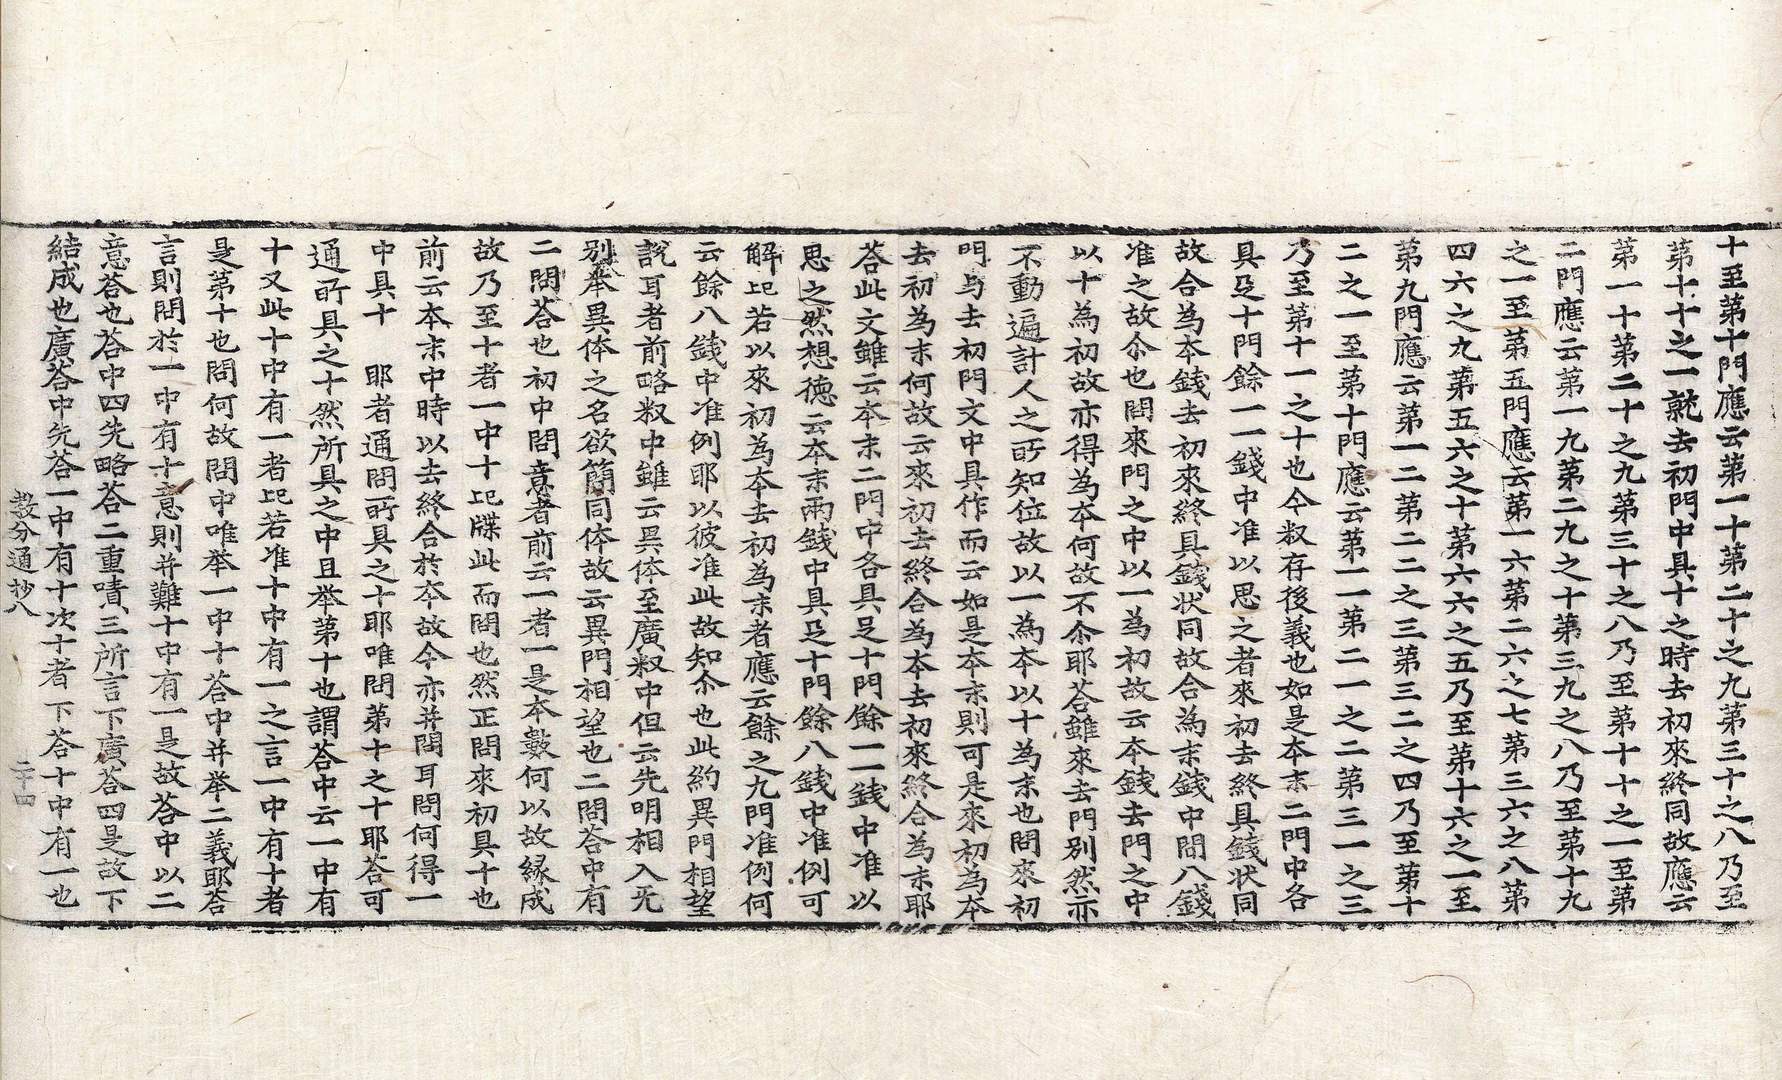 十至第十門應云第一十第二十之九第三十之八乃至
第十十之一就去初門中具十之時去初來終同故應云
第一十第二十之九第三十之八乃至第十十之一至第
二門應云第一九第二九之十第三九之八乃至第十九
之一至第五門應云第一六第二六之七第三六之八第
四六之九第五六之十第六六之五乃至第十六之一至
第九門應云第一二第二二之三第三二之四乃至第十
二之一至第十門應云第一一第二一之二第三一之三
乃至第十一之十也今叙存後義也如是本末二門中各
具足十門餘一一錢中准以思之者來初去終具錢状同
故合為本錢去初來終具錢状同故合為末錢中間八錢
准之故尒也問來門之中以一為初故云本錢去門之中
以十為初故亦得為本何故不尒耶荅雖來去門別然亦
不動遍計人之所知位故以一為本以十為末也問來初
門与去初門文中具作而云如是本末則可是來初為本
去初為末何故云來初去終合為本去初來終合為末耶
荅此文雖云本末二門中各具足十門餘一一錢中准以
思之然想德云本末兩錢中具足十門餘八錢中准例可
解記若以來初為本去初為末者應云餘之九門准例何
云餘八錢中准例耶以彼准此故知尒也此約異門相望
說耳者前略叙中雖云異体至廣叙中但云先明相入无
別举異体之名欲簡同体故云異門相望也二問荅中有
二問荅也初中問意者前云一者一是本數何以故縁成
故乃至十者一中十記牒此而問也然正問來初具十也
前云本末中時以去終合於本故今亦并問耳問何得一
中具十　耶者通問所具之十耶唯問第十之十耶荅可
通所具之十然所具之中且举第十也謂荅中云一中有
十又此十中有一者記若准十中有一之言一中有十者
是第十也問何故問中唯举一中十荅中并举二義耶荅
言則問於一中有十意則并難十中有一是故荅中以二
意荅也荅中四先略荅二重嘖三所言下廣荅四是故下
結成也廣荅中先荅一中有十次十者下荅十中有一也
教分通抄八
二十四